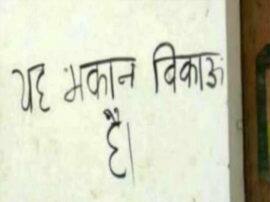 यह मकान विकाऊ
है।